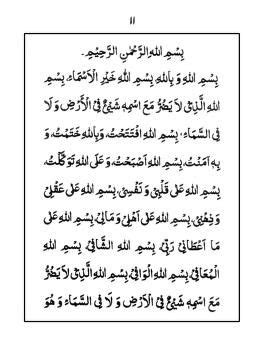 ١١
بِسْمِ اللهِ الرَّحْمٰنِ الرَّحِيْمِ۔
بِسْمِ اللهِ وَ بِاللهِ، بِسْمِ اللهِ خَيْرِ الْاَسْمَاءِ، بِسْمِ
اللهِ الَّذِيْ لَا يَضُرُّ مَعَ اسْمِهٖ شَيْئٌ فِي الْاَرْضِ وَ لَا
فِي السَّمَاءِ، بِسْمِ اللهِ افْتَتَحْتُ، وَبِاللهِ خَتَمْتُ، وَ
بِهٖ اٰمَنْتُ، بِسْمِ اللهِ اَصْبَحْتُ، وَ عَلَى اللهِ تَوَكَّلْتُ،
بِسْمِ اللهِ عَلٰى قَلْبِيْ وَ نَفْسِيْ، بِسْمِ اللهِ عَلٰى عَقْلِيْ
وَ ذِهْنِيْ، بِسْمِ اللهِ عَلٰى اَهْلِيْ وَ مَالِيْ، بِسْمِ اللهِ عَلٰى
مَا اَعْطَانِيْ رَبِّيْ، بِسْمِ اللهِ الشَّافِيْ، بِسْمِ اللهِ
الْمُعَافِيْ، بِسْمِ اللهِ الْوَافِيْ، بِسْمِ اللهِ الَّذِيْ لَا يَضُرُّ
مَعَ اسْمِهٖ شَيْئٌ فِي الْاَرْضِ وَ لَا فِي السَّمَاءِ وَ هُوَ